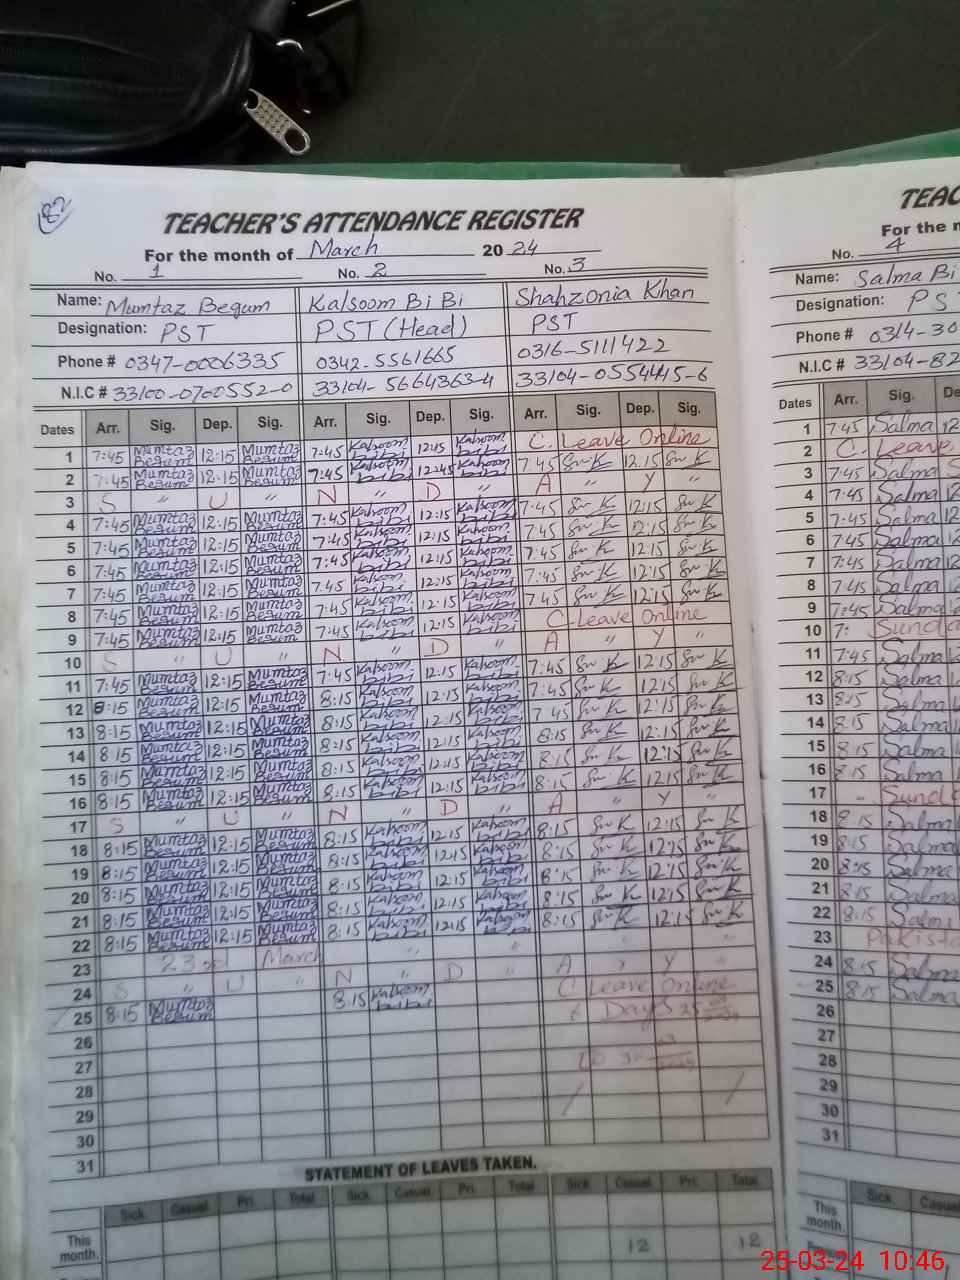 82
TEACHER'S ATTENDANCE REGISTER
For the month of March 2024
No. 1 No. 2 No. 3
Name: Mumtaz Begum Kalsoom Bi Bi Shahzonia Khan
Designation: PST PST (Head) PST
Phone # 0347-0006335 0342-5561665 0316-5111422
N.I.C # 33100-0700552-0 33104-5664363-4 33104-0554445-6
Dates Arr. Sig. Dep. Sig. Arr. Sig. Dep. Sig. Arr. Sig. Dep. Sig.
1 7:45 Mumtaz Begum 12:15 Mumtaz Begum 7:45 Kalsoom bibi 12:15 Kalsoom bibi C. Leave Online
2 7:45 Mumtaz Begum 12:15 Mumtaz Begum 7:45 Kalsoom bibi 12:45 Kalsoom bibi 7:45 12:15
3 S " U " N " D " A " Y "
4 7:45 Mumtaz Begum 12:15 Mumtaz Begum 7:45 Kalsoom bibi 12:15 Kalsoom bibi 7:45 12:15
5 7:45 Mumtaz Begum 12:15 Mumtaz Begum 7:45 Kalsoom bibi 12:15 Kalsoom bibi 7:45 12:15
6 7:45 Mumtaz Begum 12:15 Mumtaz Begum 7:45 Kalsoom bibi 12:15 Kalsoom bibi 7:45 12:15
7 7:45 Mumtaz Begum 12:15 Mumtaz Begum 7:45 Kalsoom bibi 12:15 Kalsoom bibi 7:45 12:15
8 7:45 Mumtaz Begum 12:15 Mumtaz Begum 7:45 Kalsoom bibi 12:15 Kalsoom bibi 7:45 12:15
9 7:45 Mumtaz Begum 12:15 Mumtaz Begum 7:45 Kalsoom bibi 12:15 Kalsoom bibi C-Leave Online
10 S " U " N " D " A " Y "
11 7:45 Mumtaz Begum 12:15 Mumtaz Begum 7:45 Kalsoom bibi 12:15 Kalsoom bibi 7:45 12:15
12 8:15 Mumtaz Begum 12:15 Mumtaz Begum 8:15 Kalsoom bibi 12:15 Kalsoom bibi 7:45 12:15
13 8:15 Mumtaz Begum 12:15 Mumtaz Begum 8:15 Kalsoom bibi 12:15 Kalsoom bibi 7:45 12:15
14 8:15 Mumtaz Begum 12:15 Mumtaz Begum 8:15 Kalsoom bibi 12:15 Kalsoom bibi 8:15 12:15
15 8:15 Mumtaz Begum 12:15 Mumtaz Begum 8:15 Kalsoom bibi 12:15 Kalsoom bibi 8:15 12:15
16 8:15 Mumtaz Begum 12:15 Mumtaz Begum 8:15 Kalsoom bibi 12:15 Kalsoom bibi 8:15 12:15
17 S " U " N " D " A " Y "
18 8:15 Mumtaz Begum 12:15 Mumtaz Begum 8:15 Kalsoom bibi 12:15 Kalsoom bibi 8:15 12:15
19 8:15 Mumtaz Begum 12:15 Mumtaz Begum 8:15 Kalsoom bibi 12:15 Kalsoom bibi 8:15 12:15
20 8:15 Mumtaz Begum 12:15 Mumtaz Begum 8:15 Kalsoom bibi 12:15 Kalsoom bibi 8:15 12:15
21 8:15 Mumtaz Begum 12:15 Mumtaz Begum 8:15 Kalsoom bibi 12:15 Kalsoom bibi 8:15 12:15
22 8:15 Mumtaz Begum 12:15 Mumtaz Begum 8:15 Kalsoom bibi 12:15 Kalsoom bibi 8:15 12:15
23 23rd March " "
24 S " U " N " D " A " Y "
25 8:15 Mumtaz Begum 8:15 Kalsoom bibi C Leave Online
26 6 Days 25
27
28 30
29
30
31
STATEMENT OF LEAVES TAKEN.
Sick Casual Pri. Total Sick Casual Pri. Total Sick Casual Pri. Total
This month. 12 12
TEAC
For the m
No. 4
Name: Salma Bi
Designation: PS
Phone # 0314-30
N.I.C # 33104-82
Dates Arr. Sig. De
1 7:45 Salma 12
2 C. Leave
3 7:45 Salma
4 7:45 Salma 12
5 7:45 Salma 12
6 7:45 Salma 12
7 7:45 Salma 12
8 7:45 Salma 12
9 7:45 Salma
10 7: Sunda
11 7:45 Salma
12 8:15 Salma
13 8:15 Salma
14 8:15 Salma
15 8:15 Salma
16 8:15 Salma
17 Sund
18 8:15 Salma
19 8:15 Salma
20 8:15 Salma
21 8:15 Salma
22 8:15 Salma
23 Pakista
24 8:15 Salma
25 8:15 Salma
26
27
28
29
30
31
Sick Casual
This month.
25-03-24 10:46